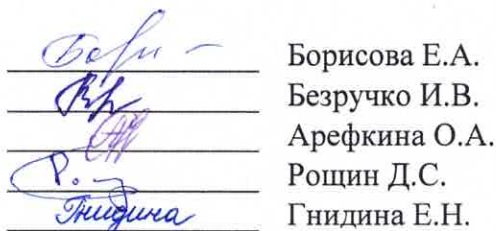 Борисова Е.А.
Безручко И.В.
Арефкина О.А.
Рощин Д.С.
Гнидина Гнидина Е.Н.